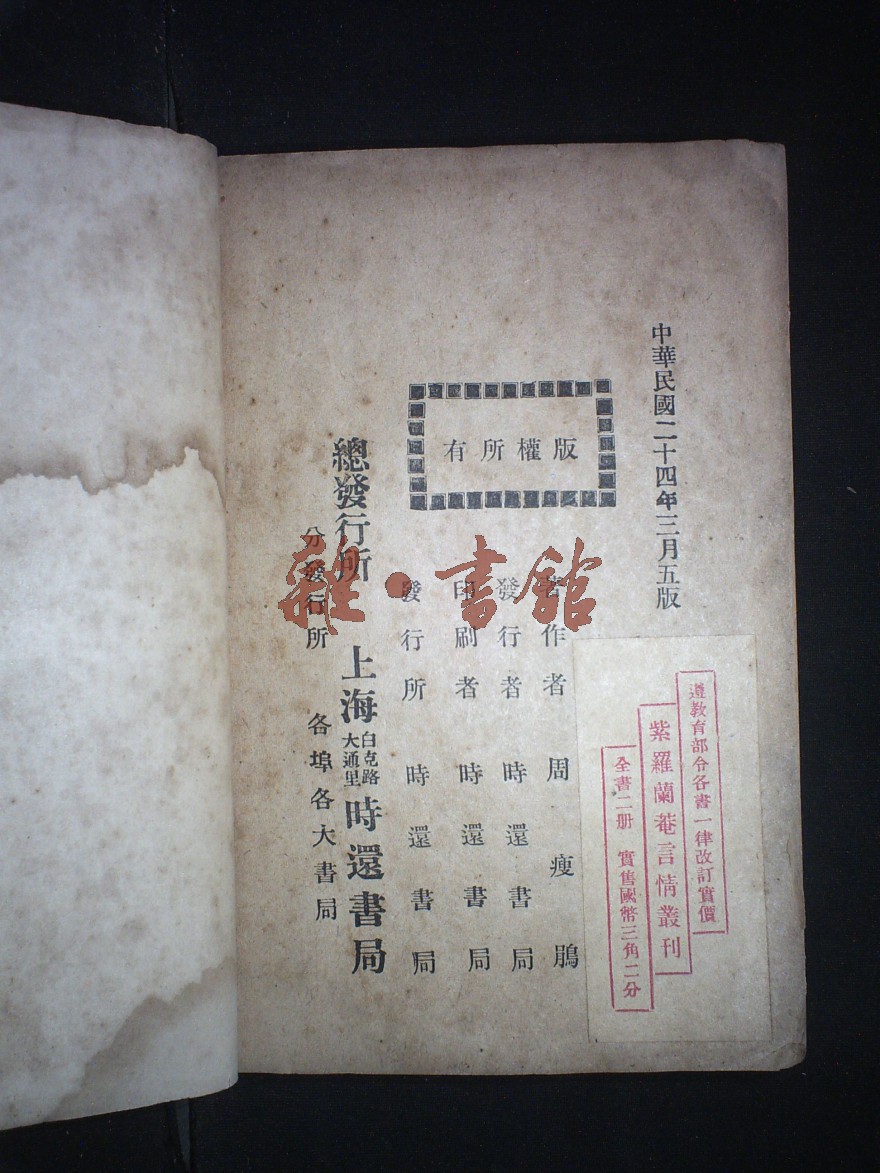 中華民國二十四年三月五版
版權所有
著作者 周瘦鵑
發行者 時還書局
印刷者 時還書局
發行所 時還書局
總發行所 上海白克路大通里時還書局
分發行所 各埠各大書局
遵教育部令各書一律改訂實價
紫羅蘭菴言情叢刊
全書二册 實售國幣三角二分
雜·書館